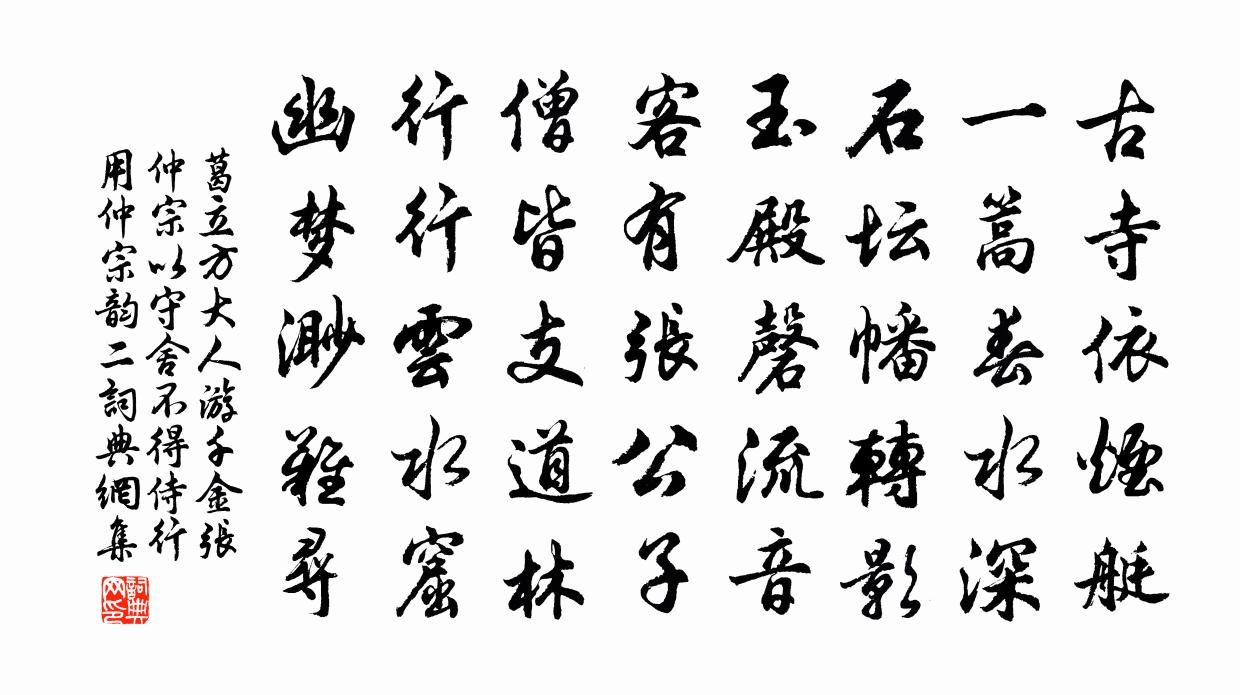 古寺依煙艇
一蒿春水深
石坛幡轉影
玉殿磬流音
客有張公子
僧皆支道林
行行雲水窟
幽梦渺難尋
葛立方大人游千金張
仲宗以守舍不得侍行
用仲宗韵二詞典網集
詞典網印